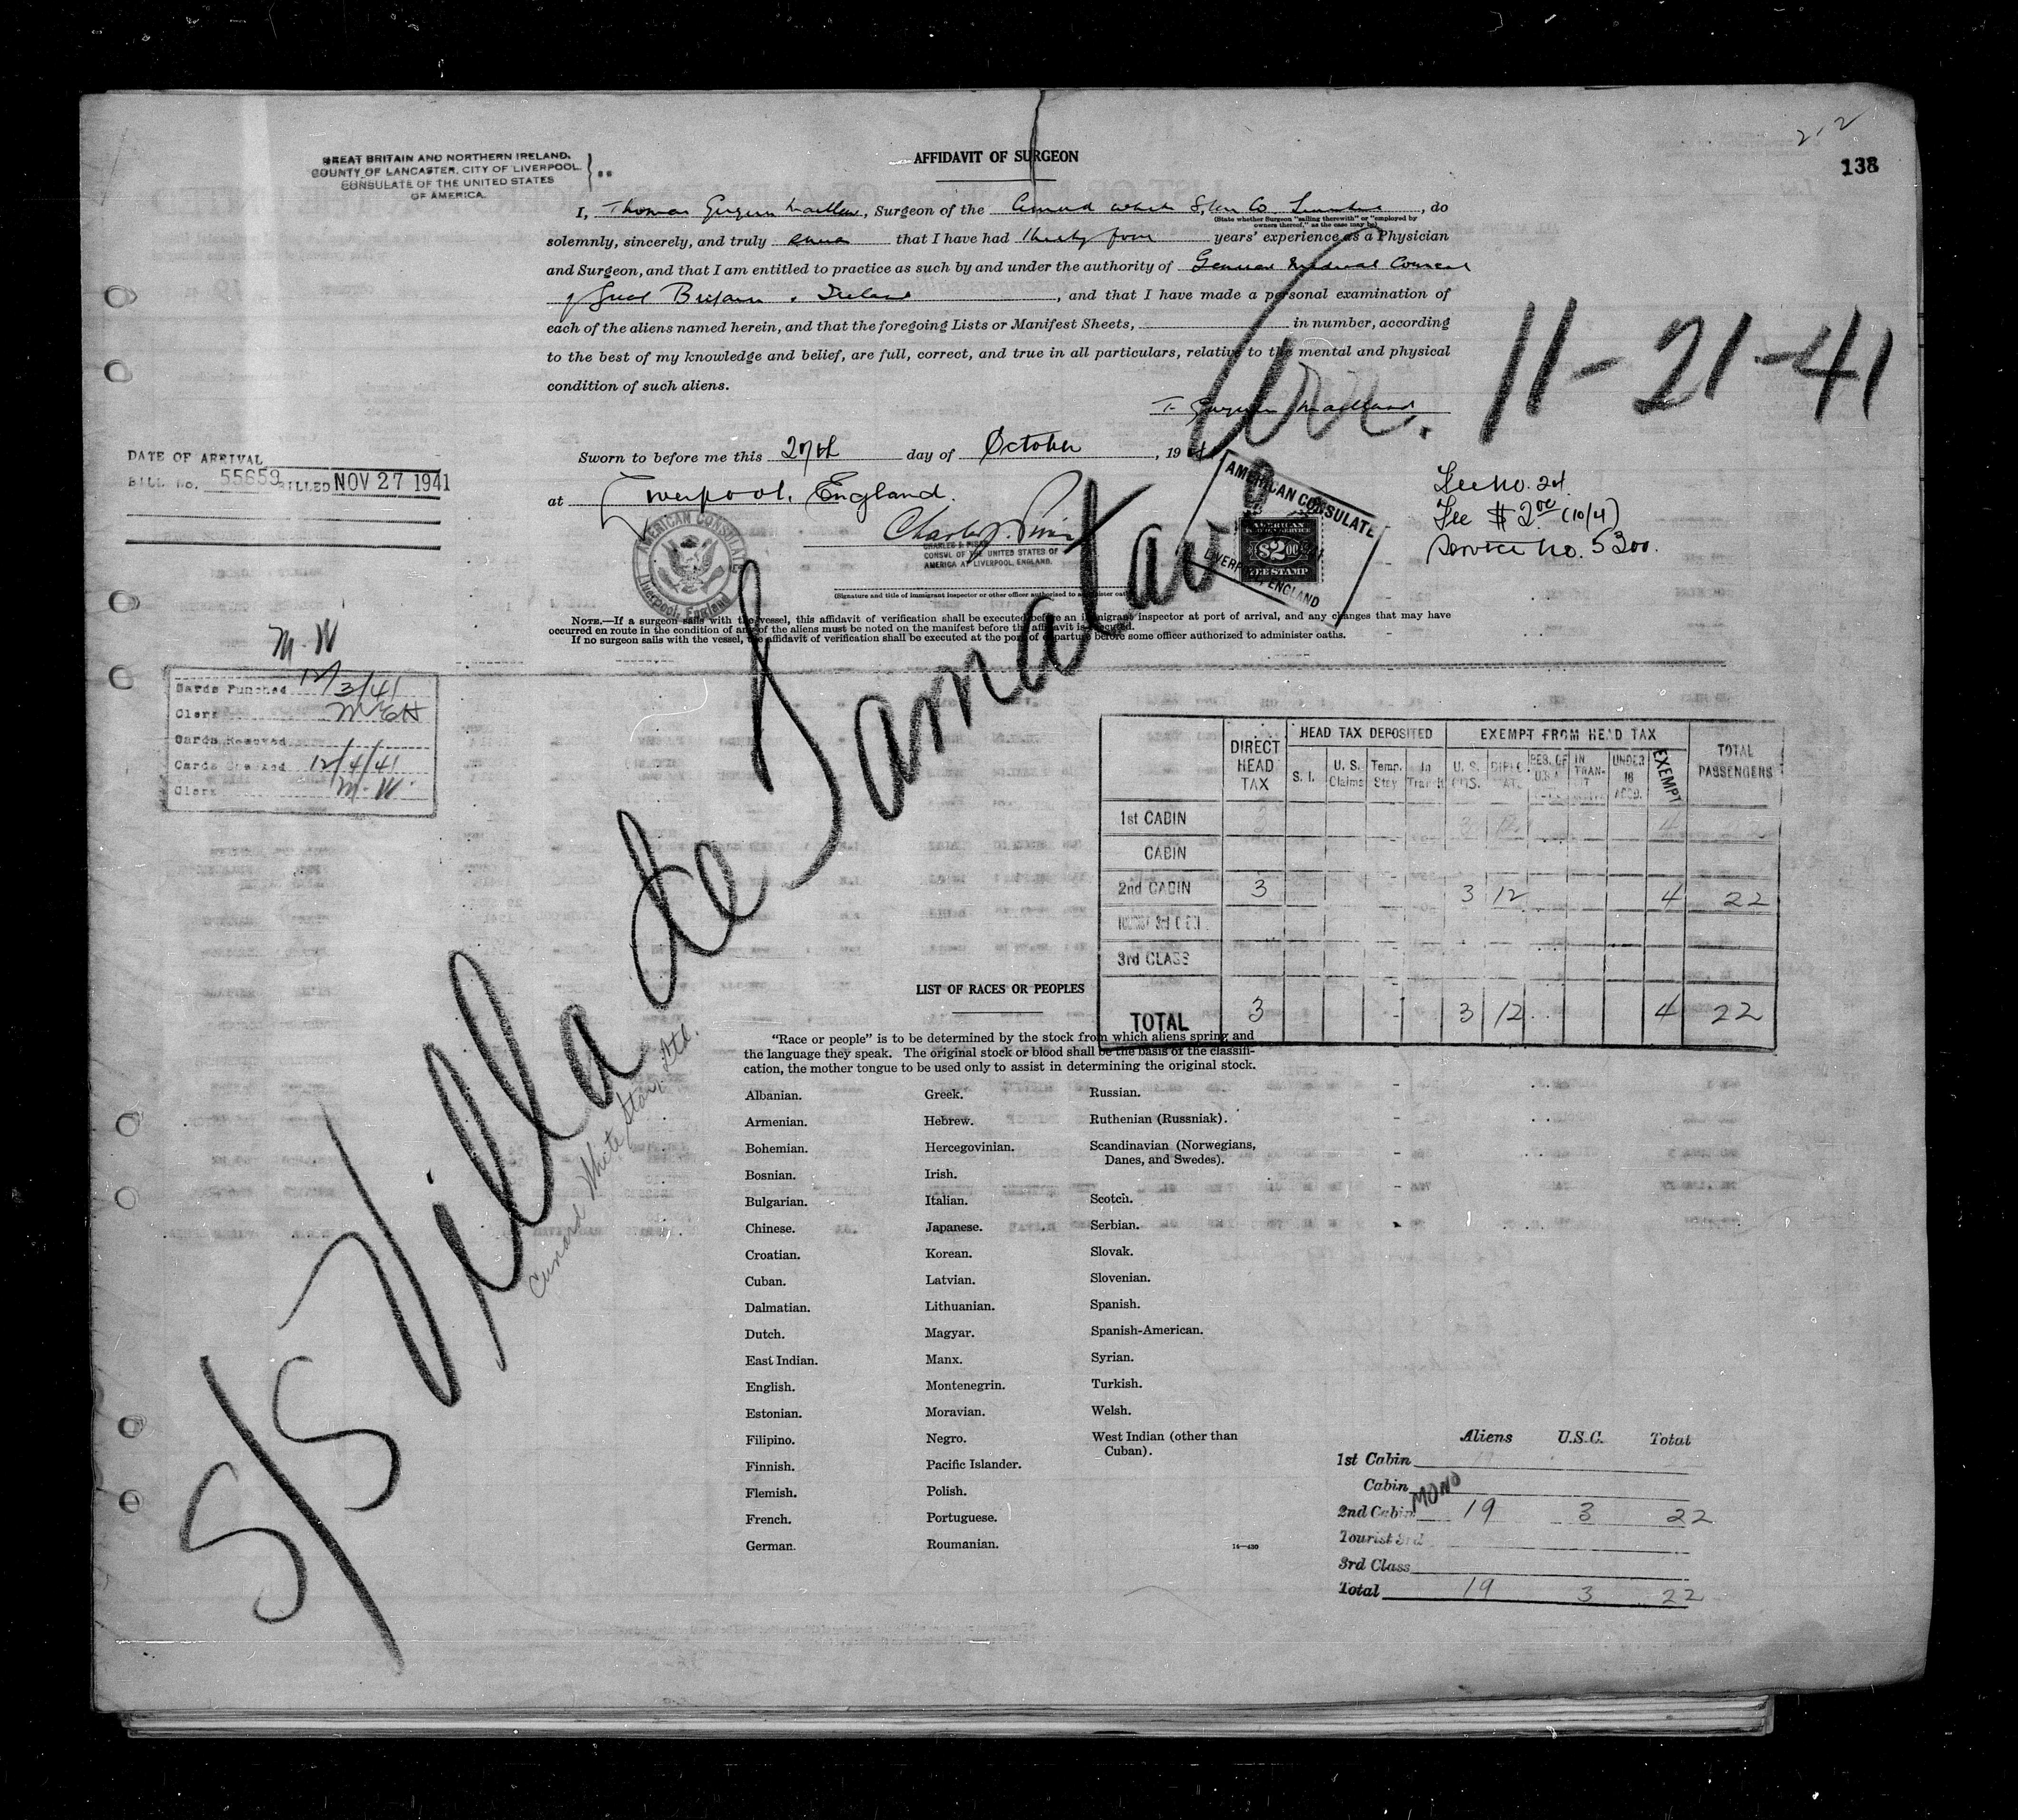 212
138
GREAT BRITAIN AND NORTHERN IRELAND,
COUNTY OF LANCASTER, CITY OF LIVERPOOL
CONSULATE OF THE UNITED STATES
OF AMERICA.
AFFIDAVIT OF SURGEON
I, Thomas , Surgeon of the Cunard White Star Co , do
(State whether Surgeon "sailing therewith" or "employed by
owners thereof," as the case may be)
solemnly, sincerely, and truly that I have had thirty four years' experience as a Physician
and Surgeon, and that I am entitled to practice as such by and under the authority of General Medical Council
of Great Britain & Ireland, and that I have made a personal examination of
each of the aliens named herein, and that the foregoing Lists or Manifest Sheets, in number, according
to the best of my knowledge and belief, are full, correct, and true in all particulars, relative to the mental and physical
condition of such aliens.
Arr. 11-21-41
Sworn to before me this 27th day of October, 19
at Liverpool, England.
CHARLES
CONSUL OF THE UNITED STATES OF
AMERICA AT LIVERPOOL, ENGLAND.
AMERICAN CONSULATE
Liverpool, England
AMERICAN CONSULATE
LIVERPOOL, ENGLAND
AMERICAN
$2.00
FEE STAMP
(Signature and title of immigrant inspector or other officer authorized to administer oaths)
Fee $2.00 (10/41)
Service no. 5300.
DATE OF ARRIVAL
BILL No. 55659 BILLED NOV 27 1941
NOTE.—If a surgeon sails with the vessel, this affidavit of verification shall be executed before an immigrant inspector at port of arrival, and any changes that may have
occurred en route in the condition of any of the aliens must be noted on the manifest before the affidavit is executed.
If no surgeon sails with the vessel, the affidavit of verification shall be executed at the port of departure before some officer authorized to administer oaths.
M.W
Cards Punched 12/3/41
Clerk
Cards Removed
Cards Checked 12/4/41
Clerk M.W.
S/S Villa de Tamatave
Cunard White Star, Ltd.
DIRECT HEAD TAX
HEAD TAX DEPOSITED
EXEMPT FROM HEAD TAX
TOTAL PASSENGERS
S. I. U. S. Claims Temp. Stay In Transit U. S. RES. OF U.S.A. IN TRANSIT UNDER 16 EXEMPT
1st CABIN
CABIN
2nd CABIN 3 3 12 4 22
3rd CLASS
TOTAL 3 3 12 4 22
LIST OF RACES OR PEOPLES
"Race or people" is to be determined by the stock from which aliens spring and
the language they speak. The original stock or blood shall be the basis of the classifi-
cation, the mother tongue to be used only to assist in determining the original stock.
Albanian.
Armenian.
Bohemian.
Bosnian.
Bulgarian.
Chinese.
Croatian.
Cuban.
Dalmatian.
Dutch.
East Indian.
English.
Estonian.
Filipino.
Finnish.
Flemish.
French.
German.
Greek.
Hebrew.
Hercegovinian.
Irish.
Italian.
Japanese.
Korean.
Latvian.
Lithuanian.
Magyar.
Manx.
Montenegrin.
Moravian.
Negro.
Pacific Islander.
Polish.
Portuguese.
Roumanian.
Russian.
Ruthenian (Russniak).
Scandinavian (Norwegians,
Danes, and Swedes).
Scotch.
Serbian.
Slovak.
Slovenian.
Spanish.
Spanish-American.
Syrian.
Turkish.
Welsh.
West Indian (other than
Cuban).
14—430
Aliens U.S.C. Total
1st Cabin
Cabin
MONO
2nd Cabin 19 3 22
Tourist 3rd
3rd Class
Total 19 3 22